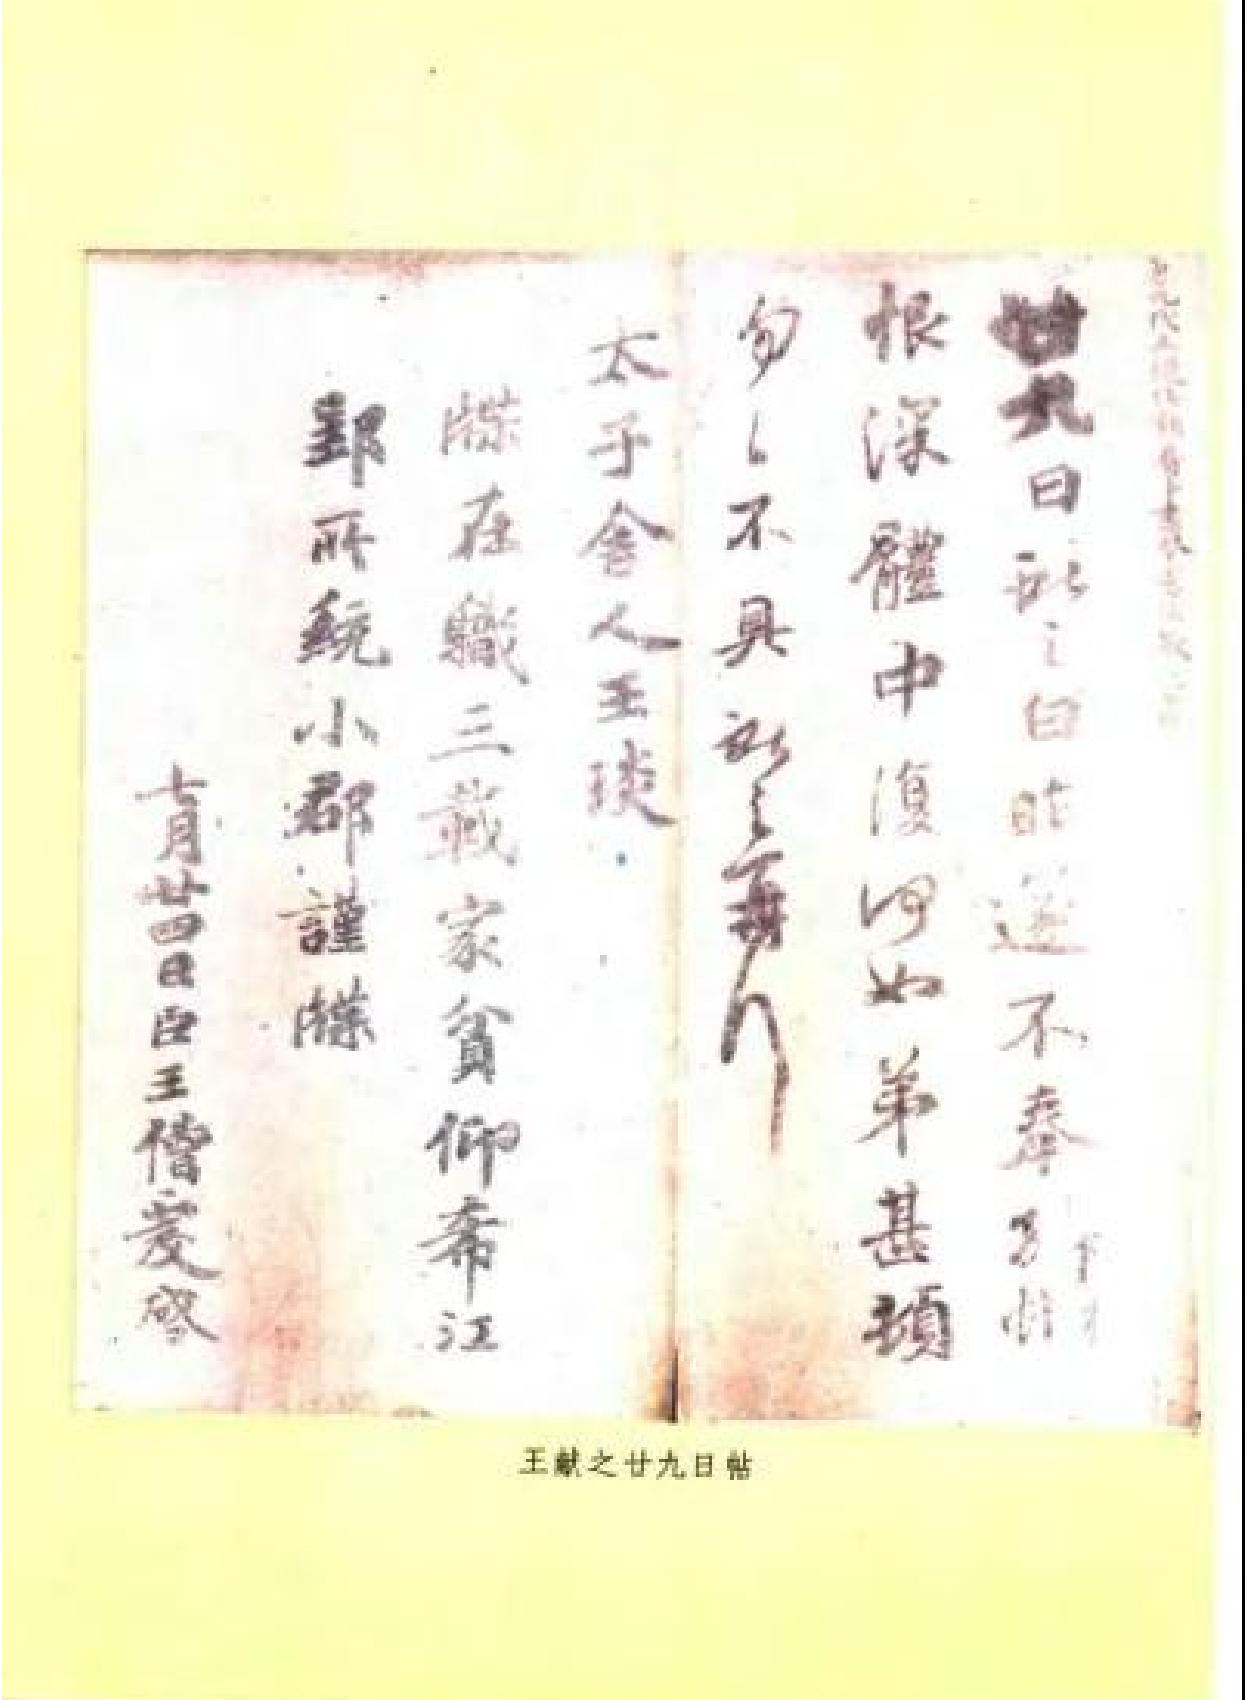 廿九日獻之白昨遂不奉別悵
恨深體中復何如弟甚頓
匆々不具獻之再拜
太子舍人王琰
牒在職三載家貧仰希江
郢所統小郡謹牒
七月廿四日臣王僧虔啓
王献之廿九日帖